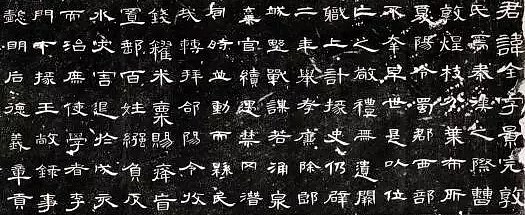 君諱全字景完敦
氏焉秦漢之際曹
敦煌枝分葉布所
夏陽令蜀郡西部
不幸早世是以位
亡之敬禮無遺闕
職上計掾史仍辟
二年舉孝廉除郎
城野戰謀若涌泉
棄官續遇禁冈潛
同時並動而縣民
戎轉拜郃陽令收
錢糴米粟賜癃盲
置郵百姓繦負反
水灾害退於戊亥
而治庶使學者李
門下掾王敞錄事
懿明后德義章貢